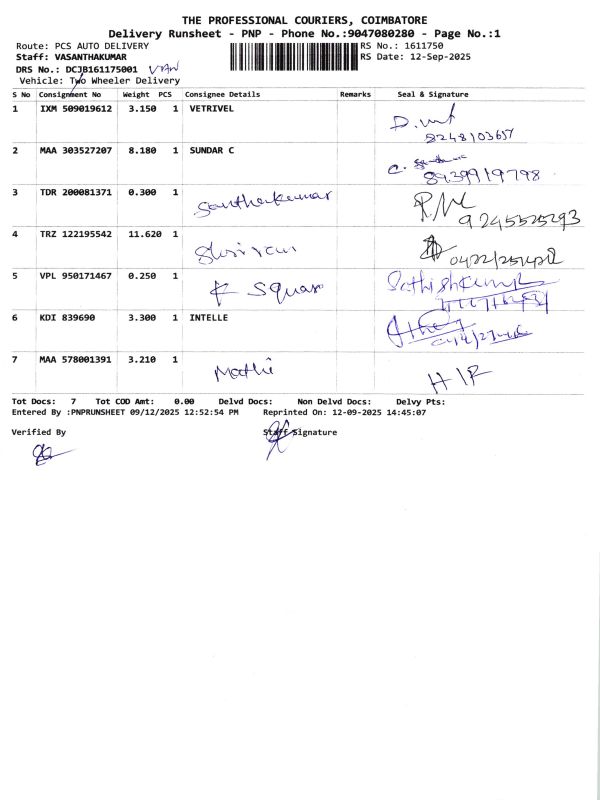 THE PROFESSIONAL COURIERS, COIMBATORE
Delivery Runsheet - PNP - Phone No.:9047080280 - Page No.:1
Route: PCS AUTO DELIVERY RS No.: 1611750
Staff: VASANTHAKUMAR RS Date: 12-Sep-2025
DRS No.: DCJB161175001 VAN
Vehicle: Two Wheeler Delivery
S No Consignment No Weight PCS Consignee Details Remarks Seal & Signature
1 IXM 509019612 3.150 1 VETRIVEL
8248103657
2 MAA 303527207 8.180 1 SUNDAR C
8939919798
3 TDR 200081371 0.300 1 Santhakumar
9245525293
4 TRZ 122195542 11.620 1
5 VPL 950171467 0.250 1 K Square Sathishkumar
6 KDI 839690 3.300 1 INTELLE
7 MAA 578001391 3.210 1 Mathi
Tot Docs: 7 Tot COD Amt: 0.00 Delvd Docs: Non Delvd Docs: Delvy Pts:
Entered By :PNPRUNSHEET 09/12/2025 12:52:54 PM Reprinted On: 12-09-2025 14:45:07
Verified By Staff Signature